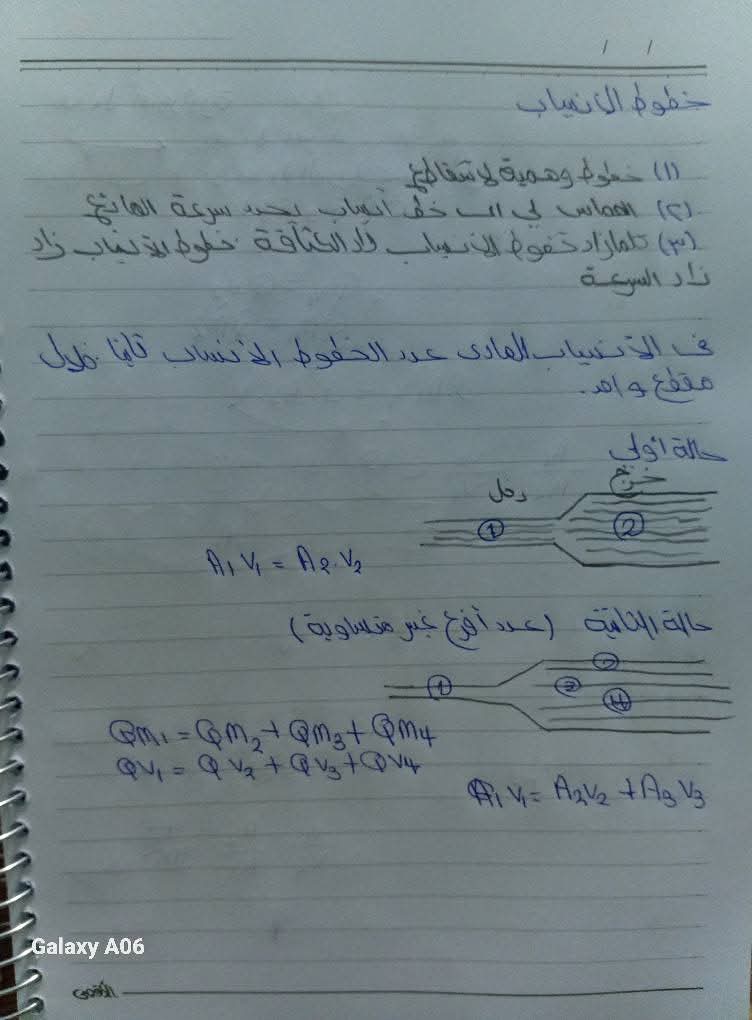 / /
خطوط الانسياب
(١) خطوط وهمية لا تتقاطع
(٢) المماس لي اب خط أنساب يحدد سرعة المائع
(٣) كلما زاد خفوط الانسياب زاد الكثافة خطوط الانسياب زاد
زاد السرعة
في الانسياب الهادى عدد الخطوط الانساب ثابتا خلال
مقطع واحد.
حالة أولى
دخل خرج
① ②
A₁ V₁ = A₂.V₂
حالة الثانية (عدد أفرع غير متساوية)
① ② ③ ④
Qm₁ = Qm₂ + Qm₃ + Qm₄
Qv₁ = Qv₂ + Qv₃ + Qv₄
A₁ V₁ = A₂V₂ + A₃ V₃
Galaxy A06